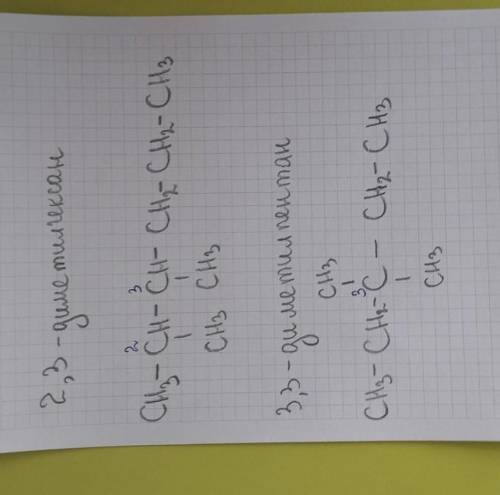 2,3-диметилгексан
2 3
CH3-CH-CH-CH2-CH2-CH3
CH3 CH3
3,3-диметилпентан
CH3
3
CH3-CH2-C-CH2-CH3
CH3